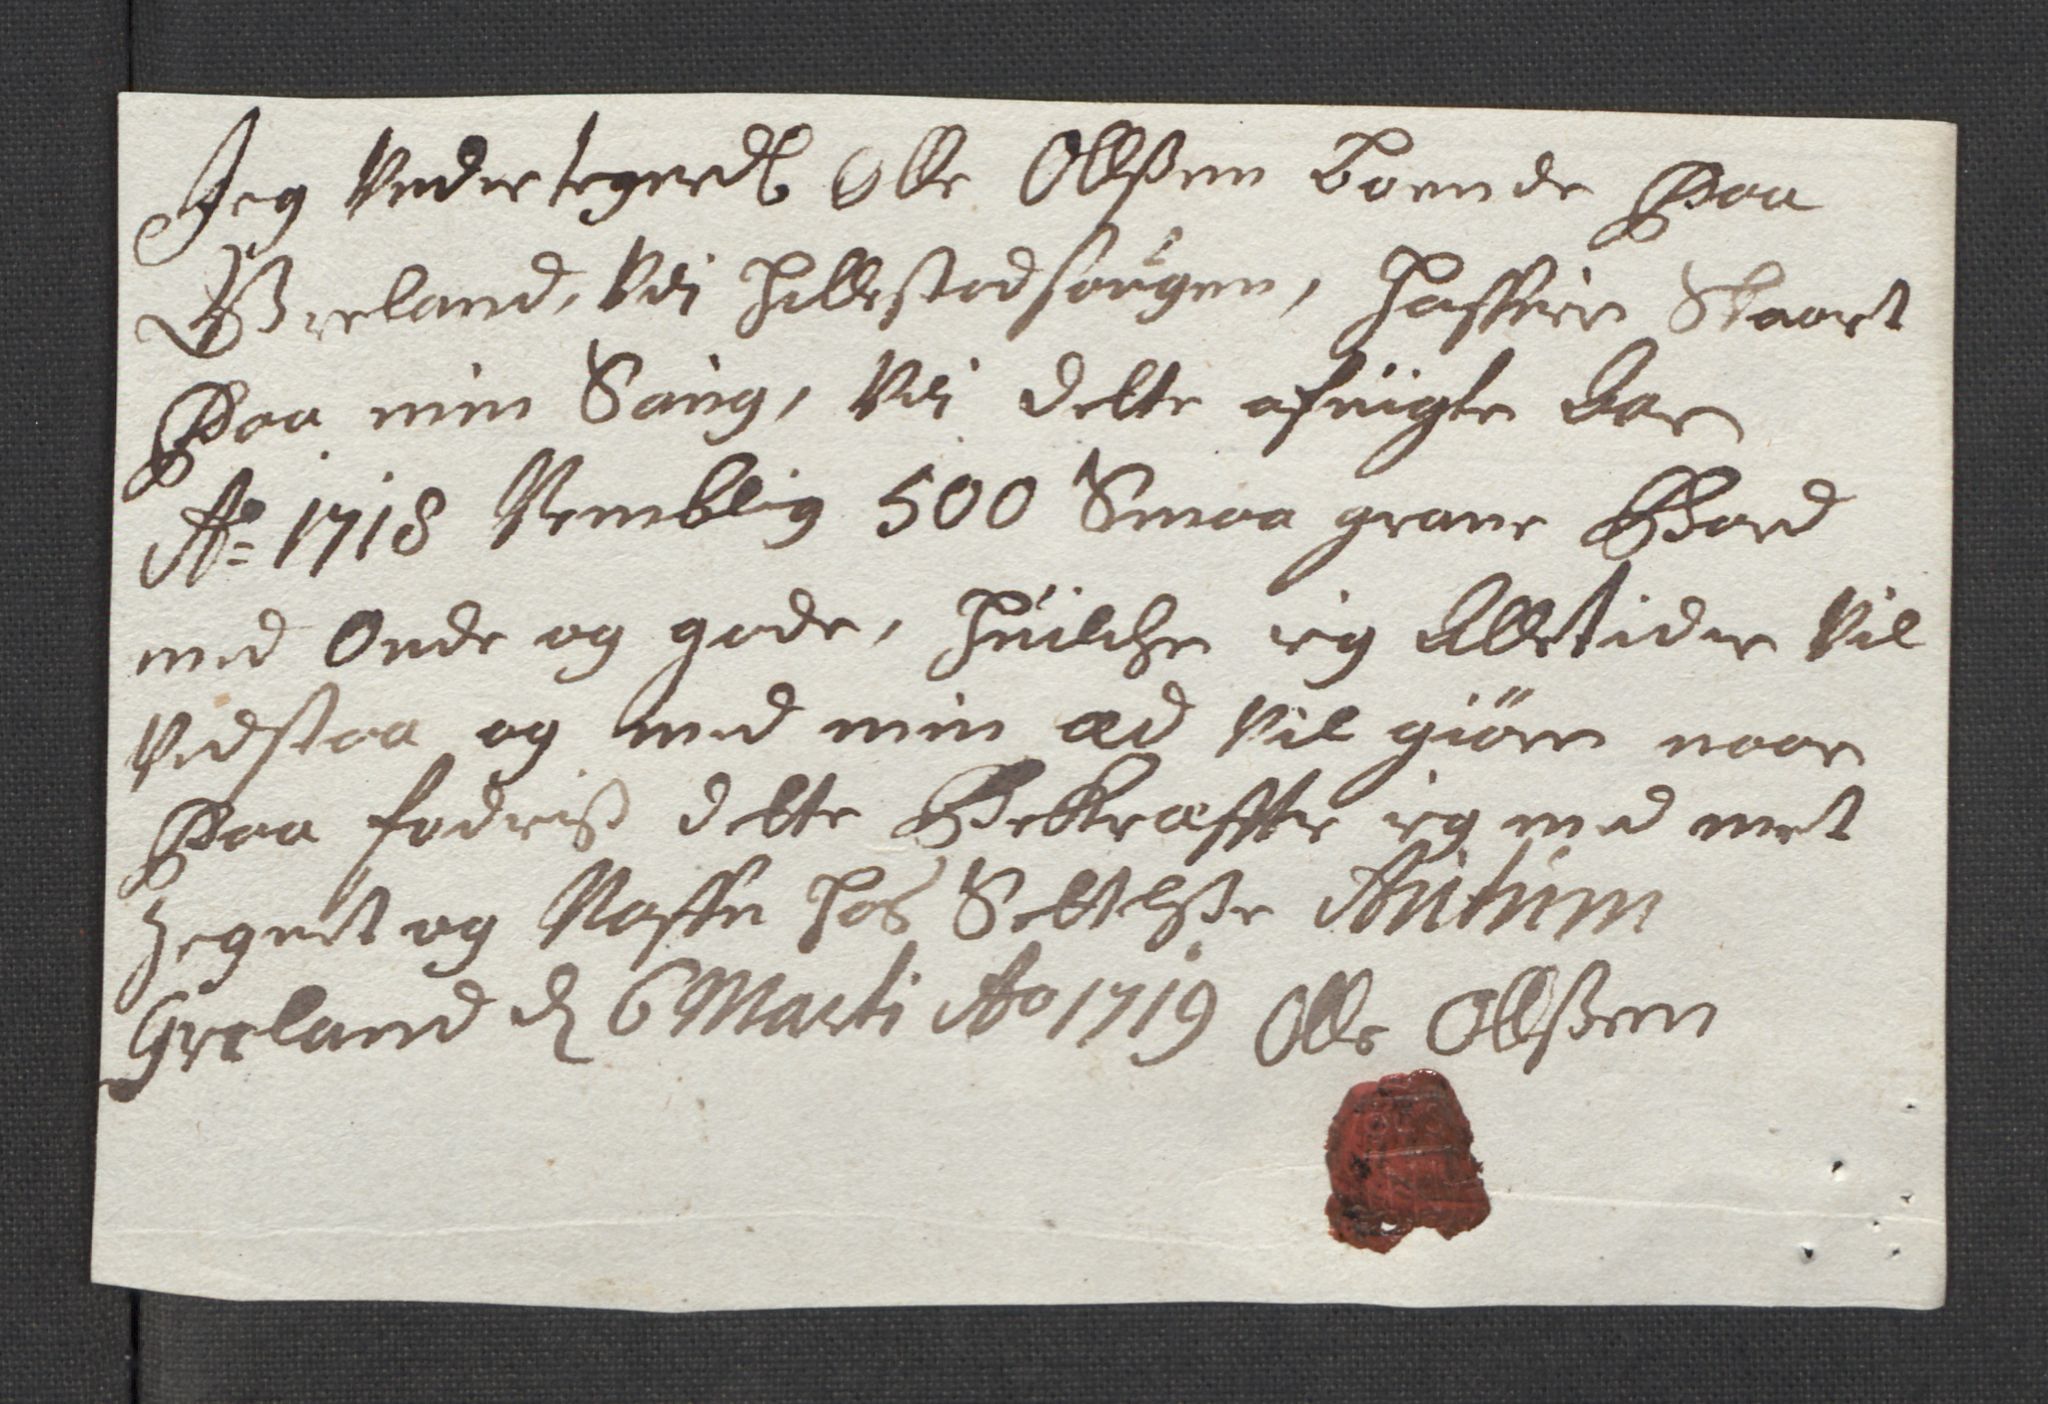 Jeg Vnder tegnedß Olle Ollßen Boende Paa
Greland, Vdi Hillestad sougen, Haffuer Skaaret
Paa min Saug, Vdi dette afuigte Aar
Ao 1718 Nemblig 500 Smaa grane Bord
med Onde og gode, Huilche ieg Alletider Vil
Vedstaa og med min æd Vil giöre naar
Paa fodriß dette Bekræffter ieg med mit
Zegnet og Naffn hos Settelße Actum
Greland d 6 Marti Ao 1719 Olle Ollßen